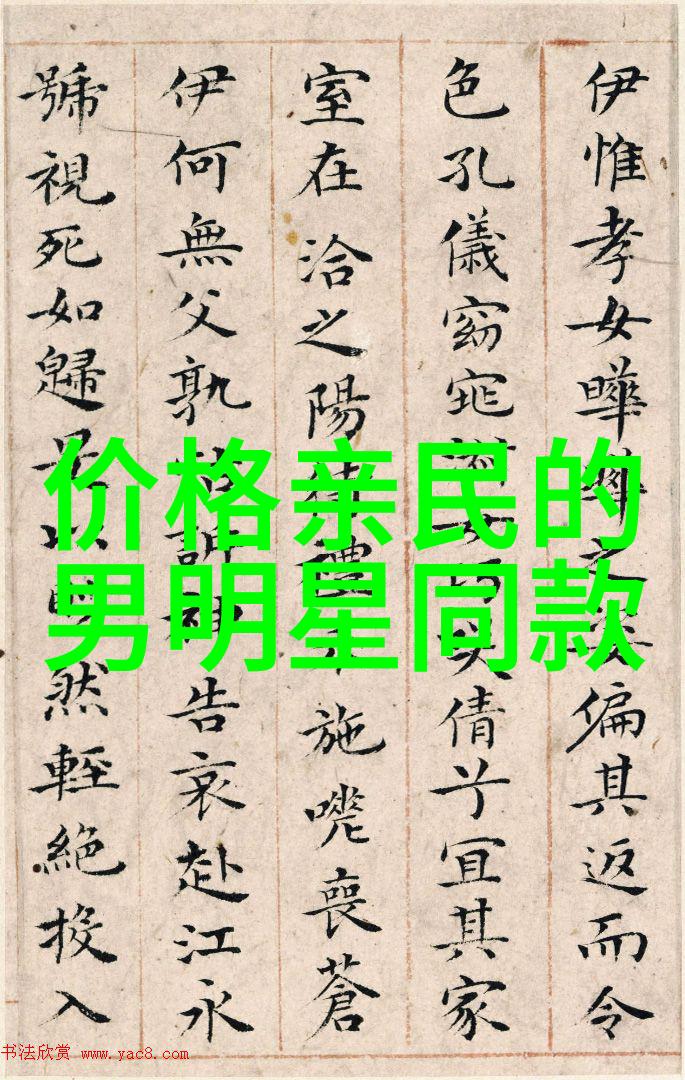 伊惟孝女曄曄之姿偏其返而令
色孔儀窈窕倩兮宜其家
室在洽之陽待禮施嗟喪蒼
伊何無父孰怙訴神告哀赴江永
號視死如歸是以然輕絕投入
价格亲民的
男明星同款
书法欣赏 www.yac8.com